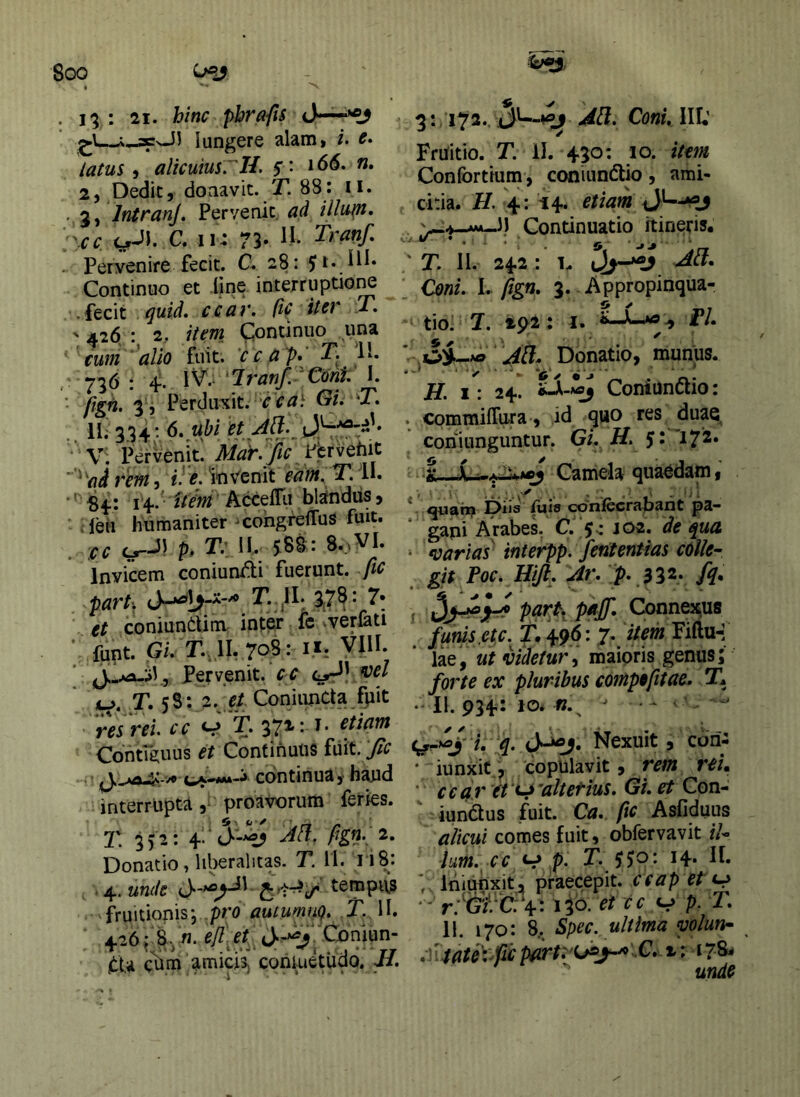 800
13: 21. hinc phrasis وصل
الجناح Iungere alam, i. e.
latus, alicuius. H. 5: 166. n.
2, Dedit, donavit. T. 88: 11.
3, Intrans. Pervenit ad illum.
cc الى. C. 11: 73. II. Trans.
Pervenire fecit. C. 28: 51. III.
Continuo et sine interruptione
fecit quid. ccar. sic iter T.
426: 2. item Continuo una
cum alio fuit. ccap. T. II.
736: 4. IV. Trans. Coni. I.
sign. 3, Perduxit. cca. Gi. T.
II. 334: 6. ubi et Act.
V. Pervenit. Mar. sic Pervenit
ad rem, i. e. invenit eam. T. II.
84: 14. item Accessu blandus,
seu humaniter congressus fuit.
cc الى p. T. II. 588: 8. VI.
Invicem coniuncti fuerunt. sic
part. متواصل T. II. 378: 7.
et coniunctim inter se versati
sunt. Gi. T. II. 708: 11. VIII.
اتصل, Pervenit. cc الى vel
ب. T. 58: 2. et Coniuncta fuit
res rei. cc ب T. 372: 1. etiam
Contiguus et Continuus fuit. sic
continua, haud
interrupta, proavorum series.
T. 352: 4. وصل Act. sign. 2.
Donatio, liberalitas. T. II. 118:
4. unde الوصل tempus
fruitionis; pro autumno. T. II.
426: 8. n. est et وصل Coniun-
cta cum amicis consuetudo. H.
3: 172. وصال Act. Coni. III.
Fruitio. T. II. 430: 10. item
Consortium, coniunctio, ami-
citia. H. 4: 14. etiam وصال
السير Continuatio itineris.
T. II. 242: 1. وصول Act.
Coni. I. sign. 3. Appropinqua-
tio. T. 192: 1. صلة, Pl.
صلات Act. Donatio, munus.
H. 1: 24. وصلة Coniunctio:
commissura, id quo res duae
coniunguntur. Gi. H. 5: 172.
وصيلة Camela quaedam,
quam Diis suis consecrabant pa-
gani Arabes. C. 5: 102. de qua
varias interpp. sententias colle-
git Poc. Hist. Ar. p. 332. sq.
موصول part. pass. Connexus
funis etc. T. 496: 7. item Fistu-
lae, ut videtur, maioris genus;
forte ex pluribus compositae. T.
II. 934: 10. n.
وصى i. q. وصل. Nexuit, con-
iunxit, copulavit, rem rei.
ccar et ب alterius. Gi. et Con-
iunctus fuit. Ca. sic Assiduus
alicui comes fuit, observavit il-
lum. cc ب p. T. 550: 14. II.
Iniunxit, praecepit. ccap et ب
r. Gi. C. 4: 130. et cc ب p. T.
II. 170: 8. Spec. ultima volun-
tate: sic part. موص C. 2: 178.
unde